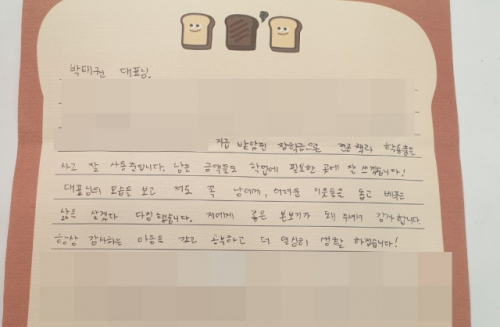 박태권 대표님.
지금 받았던 장학금으로 전공책과 학용품을
사고 잘 사용중입니다. 남은 금액들도 학업에 필요한 곳에 잘 쓰겠습니다!
대표님의 모습을 보고 저도 꼭 남에게, 어려운 이웃들을 돕고 베푸는
삶을 살겠다 다짐했습니다. 저에게 좋은 본보기가 되어 주셔서 감사합니다.
항상 감사하는 마음을 갖고 공부하고 더 열심히 생활 하겠습니다!